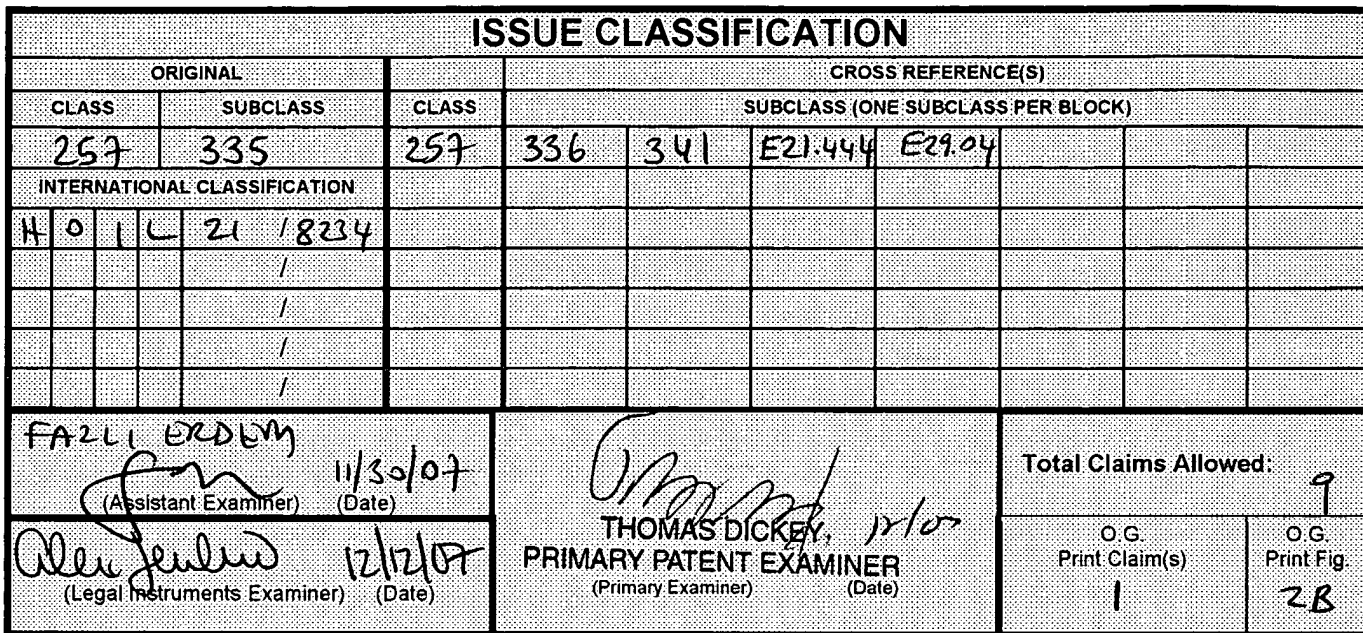 ISSUE CLASSIFICATION
ORIGINAL CROSS REFERENCE(S)
CLASS SUBCLASS CLASS SUBCLASS (ONE SUBCLASS PER BLOCK)
257 335 257 336 341 E21.444 E29.04
INTERNATIONAL CLASSIFICATION
H 0 1 L 21 / 8234
/
/
/
/
FAZLI ERDEM
11/30/07
(Assistant Examiner) (Date)
12/12/07
(Legal Instruments Examiner) (Date)
THOMAS DICKEY,
PRIMARY PATENT EXAMINER
(Primary Examiner) (Date)
Total Claims Allowed:
9
O.G. Print Claim(s)
1
O.G. Print Fig.
2B